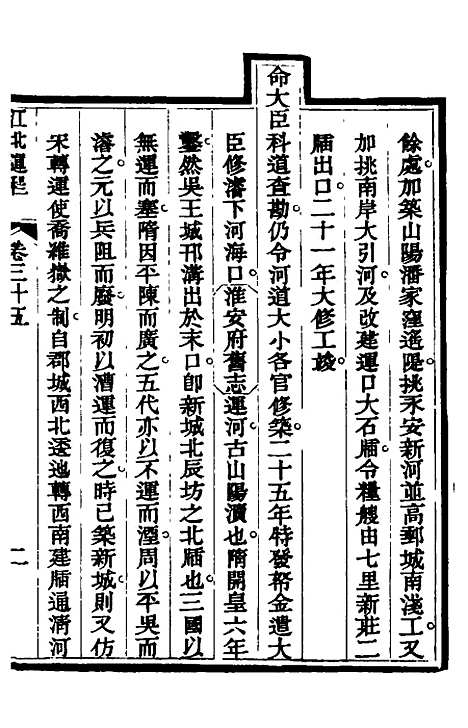 餘處加築山陽潘家窪遙隄挑永安新河並高郵城南淺工又
加挑南岸大引河及改建運口大石牐令糧艘由七里新莊二
牐出口二十一年大修工竣
命大臣科道查勘仍令河道大小各官修築二十五年特發帑金遣大
臣修濬下河海口淮安府舊志運河古山陽瀆也隋開皇六年
鑿然吳王城邗溝出於末口卽新城北辰坊之北牐也三國以
無運而塞隋因平陳而廣之五代亦以不運而湮周以平吳而
濬之元以兵阻而廢明初以漕運而復之時已築新城則又仿
宋轉運使喬維嶽之制自郡城西北逶迤轉西南建牐通淸河
江北運程
卷三十五
二